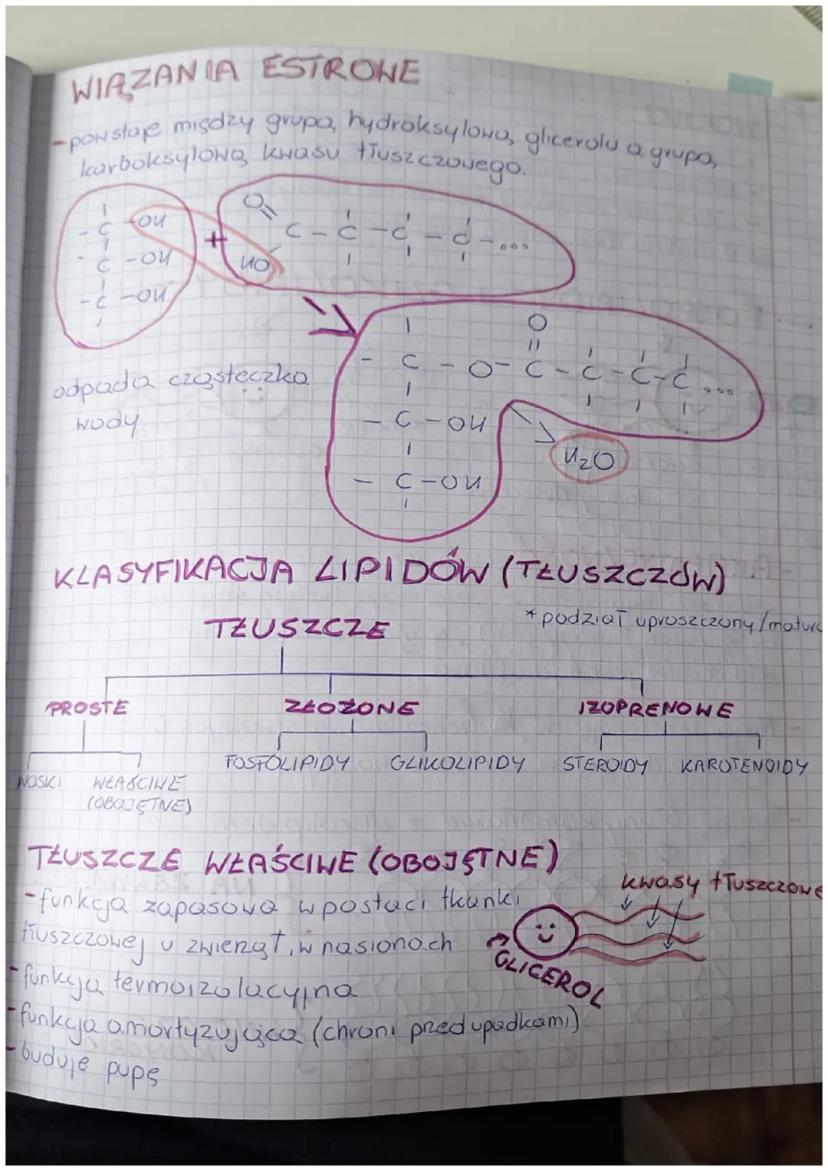 WIĄZANIA ESTROWE
-powstaje między grupą hydroksylową glicerolu a grupą
karboksylową kwasu tłuszczowego.
- C -OH + O
- C -OH HO C - C - C - C -...
- C -OH
odpada cząsteczka
wody
O
- C - O - C - C - C - C ...
- C - OH
H2O
- C - OH
KLASYFIKACJA LIPIDÓW (TŁUSZCZÓW)
TŁUSZCZE
*podział uproszczony/matura
PROSTE ZŁOŻONE IZOPRENOWE
WOSKI WŁAŚCIWE FOSFOLIPIDY GLIKOLIPIDY STEROIDY KAROTENOIDY
(OBOJĘTNE)
TŁUSZCZE WŁAŚCIWE (OBOJĘTNE)
kwasy tłuszczowe
-funkcja zapasowa w postaci tkanki
tłuszczowej u zwierząt, w nasionach
GLICEROL
-funkcja termoizolacyjna
-funkcja amortyzująca (chroni przed upadkami)
-buduje pupę